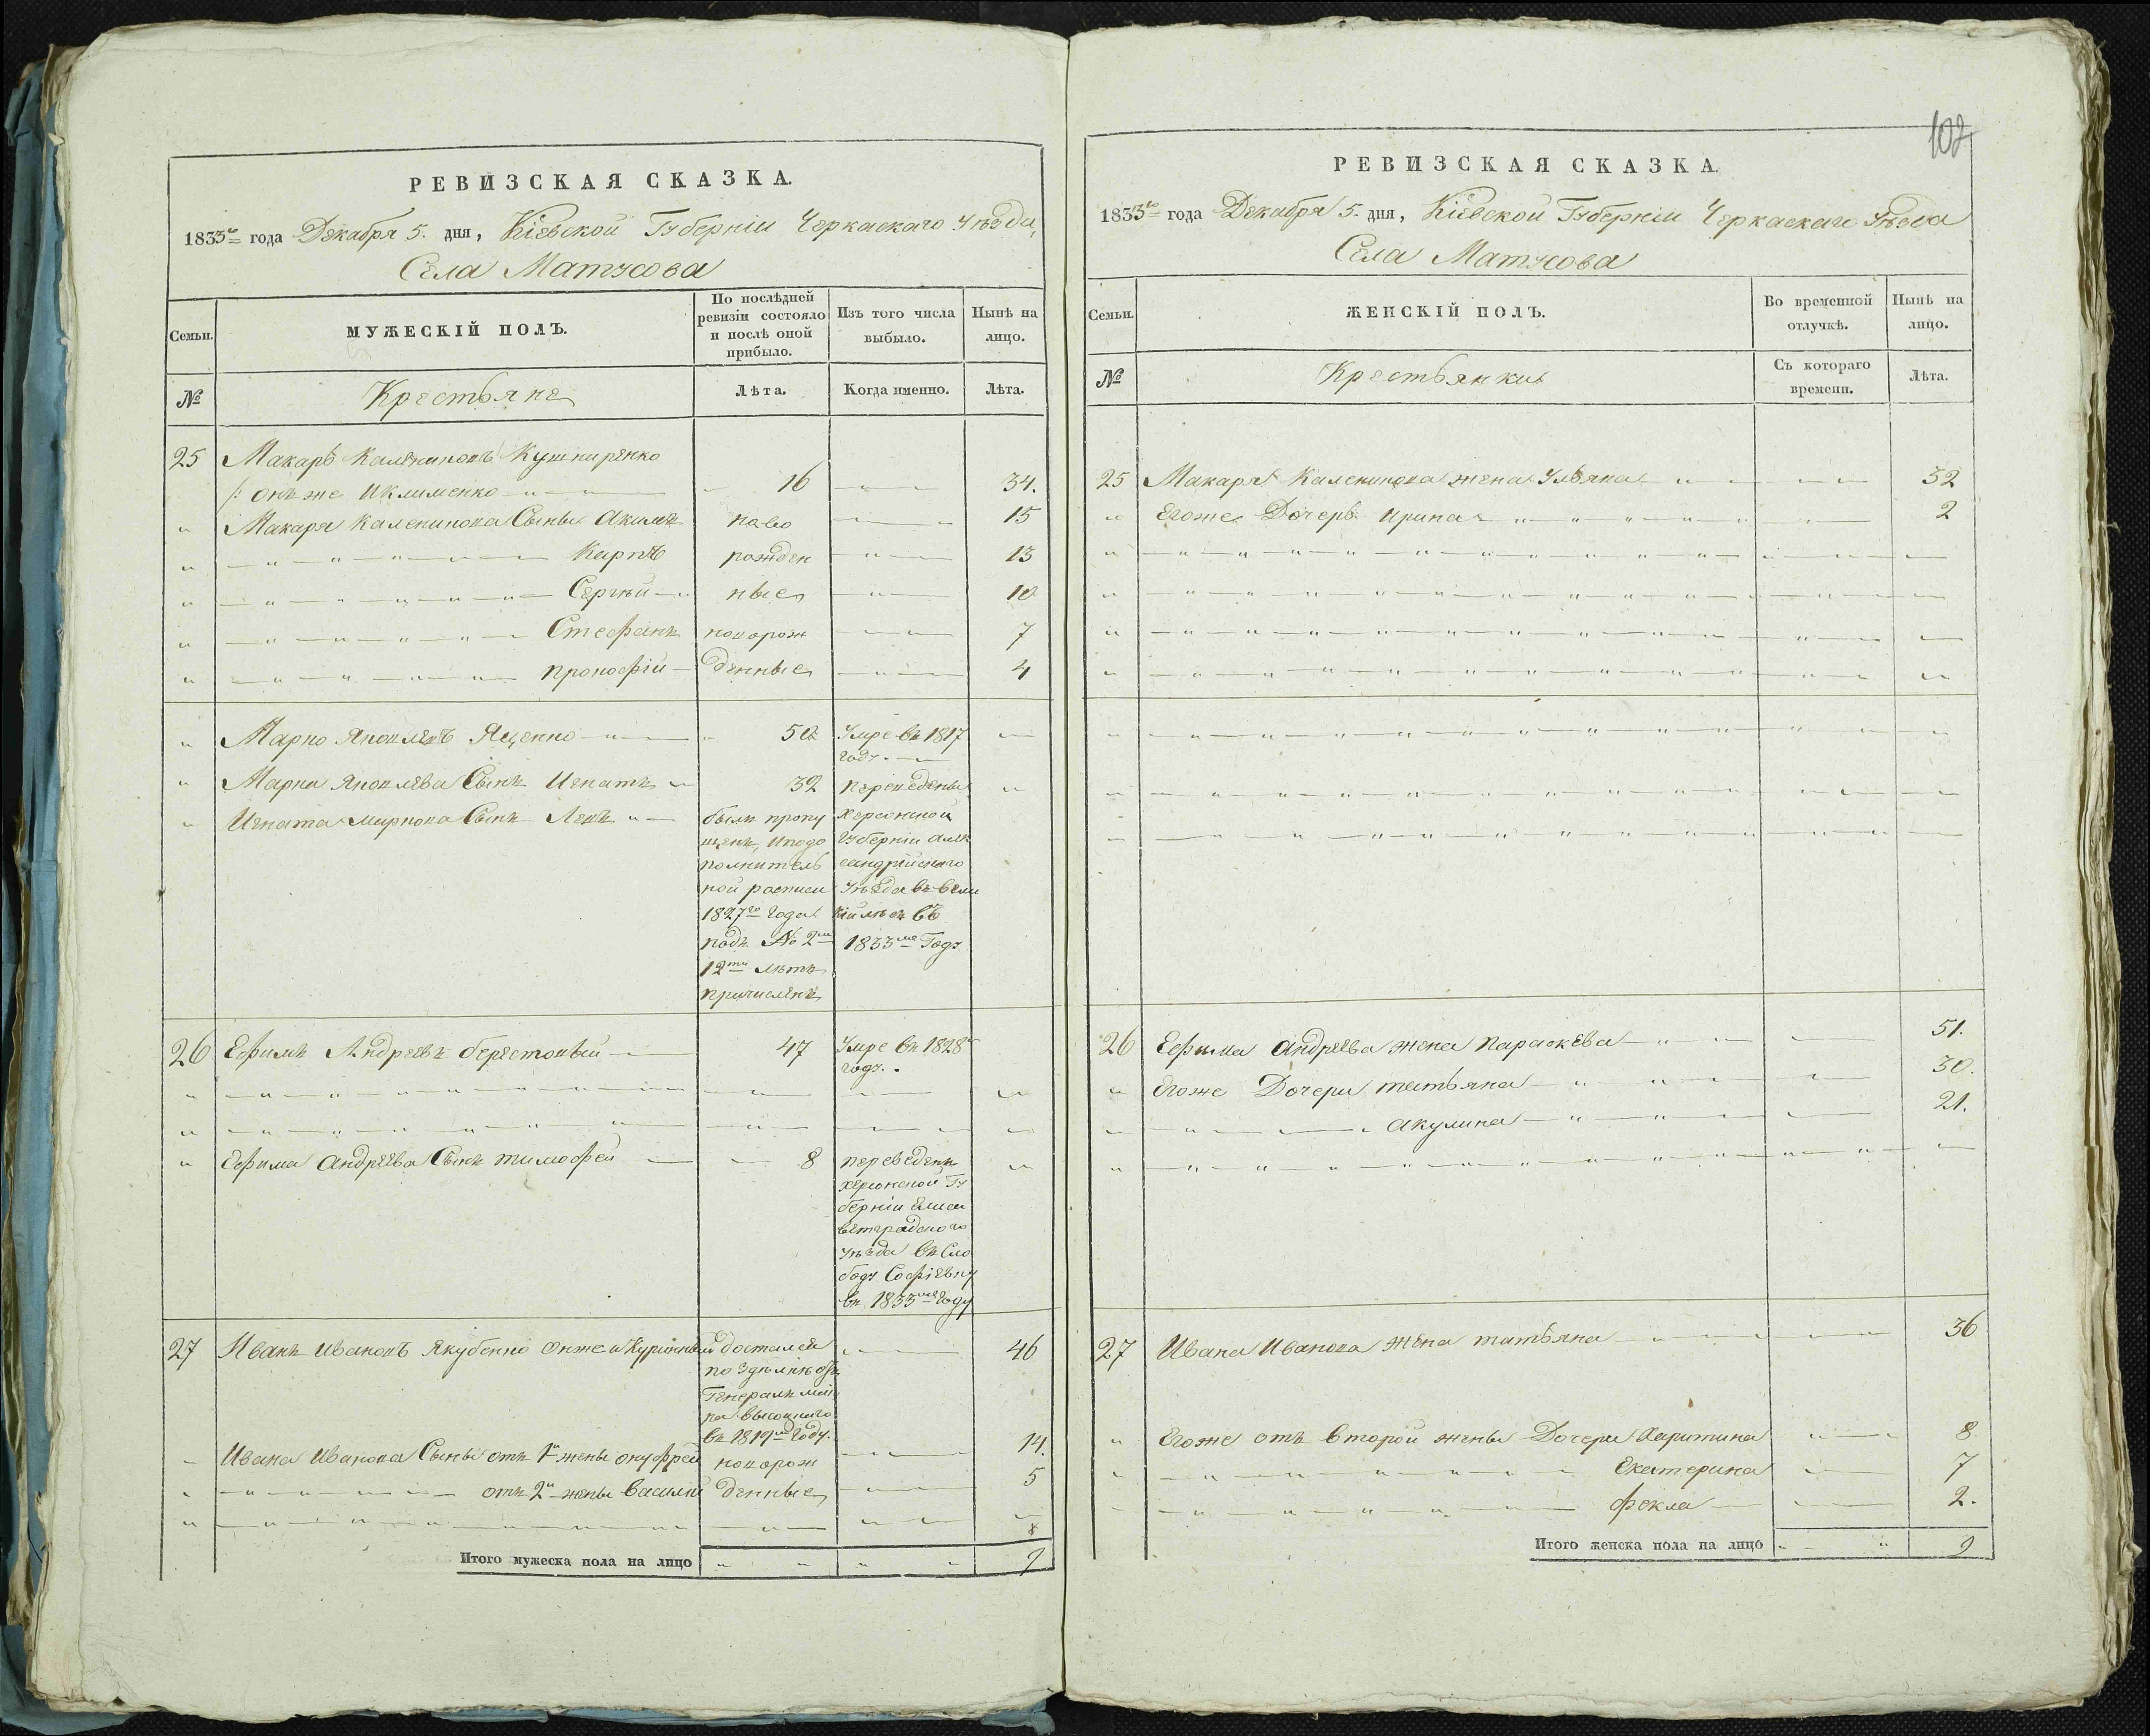 РЕВИЗСКАЯ СКАЗКА.
1833го года Декабря 5. дня, Кіевской Губерніи Черкаскаго Уѣзда,
Села Матусова
Семьи.
МУЖЕСКІЙ ПОЛЪ.
По послѣдней ревизіи состояло и послѣ оной прибыло.
Изъ того числа выбыло.
Нынѣ на лицо.
№
Крестьяне
Лѣта.
Когда именно.
Лѣта.
25 Макаръ Калениковъ Кушниренко
/: онъ же Иклименко 16 34.
Макара Каленикова Сыны Акимъ ново 15
Карпъ рожден 13
Сергѣй ные 10
Стефанъ новорож 7
Прокофій денные 4
Марко Яковлевъ Яценко 50 Умре въ 1817
году.
Марка Яковлева Сынъ Игнатъ 32 переведены
Игната Маркова Сынъ Левъ былъ пропу Херсонской
щенъ, иподо Губерніи Алек
полнитель сандрійскаго
ной росписи Уѣзда въ вели
1827го Года
подъ № 2м 1833мъ Году
12ти лѣтъ
причисленъ
26 Ефимъ Андреевъ берестовый 47 Умре въ 1828
году.
Ефима Андреева Сынъ тимофей 8 переведенъ
херсонской Гу
берніи Елиса
ветградскаго
уѣзда въ Сло
боду Софіевку
въ 1833мъ Году
27 Иванъ Ивановъ Якубенко онже и достался 46
Генералъ
въ 1819м Году.
Ивана Иванова Сыны отъ 1й жены онуфрей новорож 14.
отъ 2й жены Василий денные 5
8
Итого мужеска пола на лицо 9
102
РЕВИЗСКАЯ СКАЗКА.
1833го года Декабря 5. дня, Кіевской Губерніи Черкаскаго Уѣзда
Села Матусова
Семьи.
ЖЕНСКІЙ ПОЛЪ.
Во временной отлучкѣ.
Нынѣ на лицо.
№
Крестьянки
Съ котораго времени.
Лѣта.
25 Макара Каленикова жена Ульяна 32
Егоже Дочерь Ирина 2
26 Ефима Андреева жена Параскева 51.
Егоже Дочери татьяна 30.
акулина 21.
27 Ивана Иванова жена татьяна 36
Егоже отъ второй жены Дочери Харитина 8
Екатерина 7
фекла 2.
Итого женска пола на лицо 9